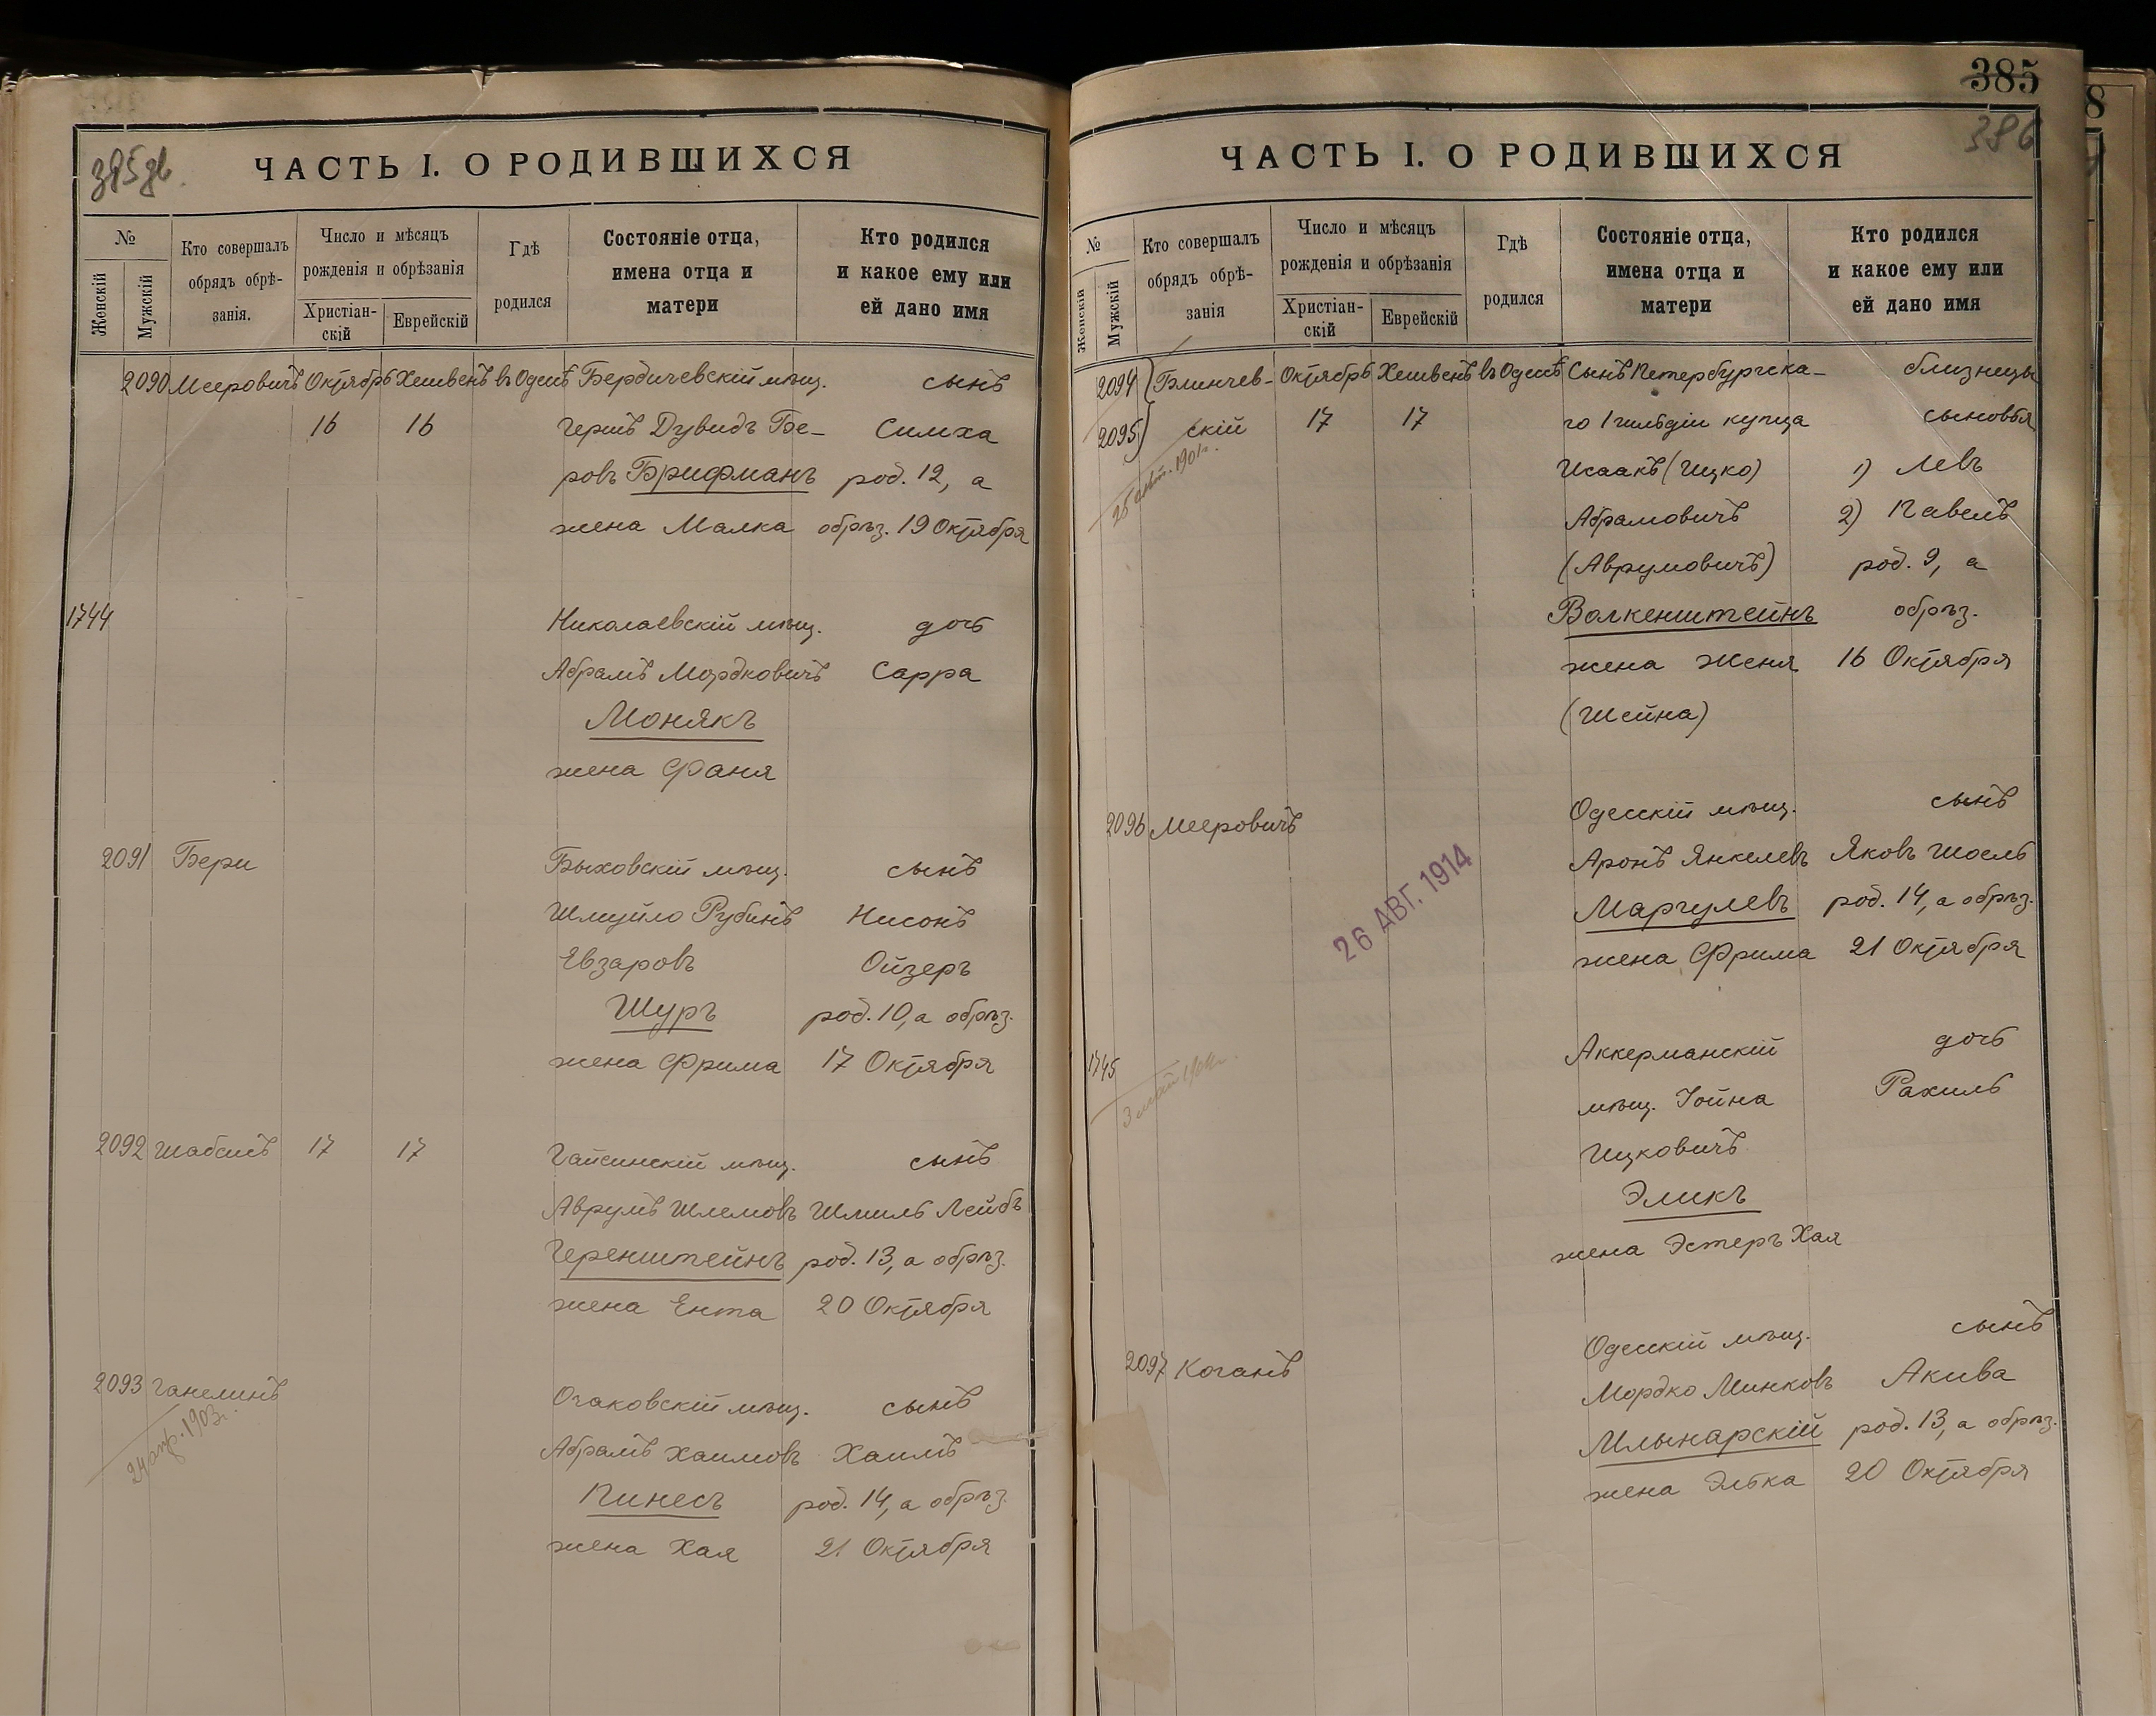 385
386
385 об.
ЧАСТЬ I. О РОДИВШИХСЯ
№
Женскій
Мужскій
Кто совершалъ
обрядъ обрѣ-
занія.
Число и мѣсяцъ
рожденія и обрѣзанія
Христіан-
скій
Еврейскій
Гдѣ
родился
Состояніе отца,
имена отца и
матери
Кто родился
и какое ему или
ей дано имя
2090 Мееровичъ Октябрь Хешвенъ въ Одессѣ Бердичевскій мѣщ. сынъ
16 16 Гершъ Дувидъ Бе- Симха
ровъ Брифманъ род. 12, а
жена Малка обрѣз. 19 Октября
1744 Николаевскій мѣщ. дочь
Абрамъ Мордковичъ Сарра
Монякъ
жена Фаня
2091 Бери Быховскій мѣщ. сынъ
Шмуйло Рубинъ Нисонъ
Евзаровъ Ойзеръ
Шуръ род. 10, а обрѣз.
жена Фрима 17 Октября
2092 Шабсисъ 17 17 Гайсинскій мѣщ. сынъ
Аврумъ Шлемовъ Шмиль Лейбъ
Геренштейнъ род. 13, а обрѣз.
жена Ента 20 Октября
2093 Ганелинъ Очаковскій мѣщ. сынъ
24 апр. 1903г. Абрамъ Хаимовъ Хаимъ
Пинесъ род. 14, а обрѣз.
жена Хая 21 Октября
ЧАСТЬ I. О РОДИВШИХСЯ
№
Женскій
Мужскій
Кто совершалъ
обрядъ обрѣ-
занія
Число и мѣсяцъ
рожденія и обрѣзанія
Христіан-
скій
Еврейскій
Гдѣ
родился
Состояніе отца,
имена отца и
матери
Кто родился
и какое ему или
ей дано имя
2094 Блинчев- Октябрь Хешвенъ въ Одессѣ Сынъ Петербургска- близнецы
2095 скій 17 17 го 1 гильдіи купца сыновья
1901г. Исаакъ (Ицко) 1) Левъ
Абрамовичъ 2) Павелъ
(Аврумовичъ) род. 9, а
Волкенштейнъ обрѣз.
жена Женя 16 Октября
(Шейна)
2096 Мееровичъ Одесскій мѣщ. сынъ
26 АВГ. 1914 Аронъ Янкелевъ Яковъ Шоель
Маргулевъ род. 14, а обрѣз.
жена Фрима 21 Октября
1745 Аккерманскій дочь
мѣщ. Іойна Рахиль
Ицковичъ
Эликъ
жена Эстеръ Хая
2097 Коганъ Одесскій мѣщ. сынъ
Мордко Минковъ Акива
Млынарскій род. 13, а обрѣз.
жена Элька 20 Октября